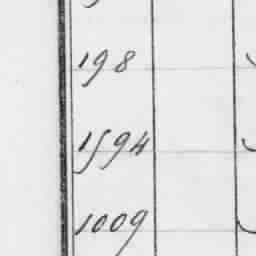 198
1594
1009